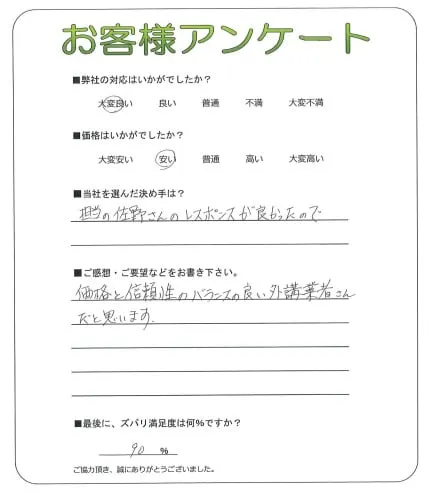 お客様アンケート
■弊社の対応はいかがでしたか？
大変良い 良い 普通 不満 大変不満
■価格はいかがでしたか？
大変安い 安い 普通 高い 大変高い
■当社を選んだ決め手は？
担当の佐野さんのレスポンスが良かったので
■ご感想・ご要望などをお書き下さい。
価格と信頼性のバランスの良い外講業者さん
だと思います.
■最後に、ズバリ満足度は何%ですか？
90 %
ご協力頂き、誠にありがとうございました。